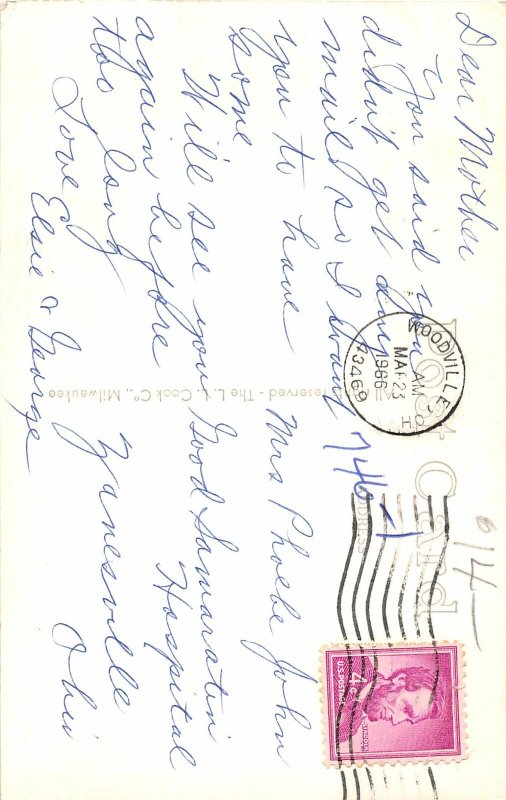 Dear Mother
You said you
didn't get any
mail so I want
you to have
some
Will see you
again before
too long
Love
Elsie & George
Post Card
ADDRESS
WOODVILLE, O
MAR 23
AM
1966
43469
4¢
U.S. POSTAGE
LINCOLN
746-1
614
Mrs Phoebe John
Good Samaratin
Hospital
Zanesville
Ohio
All Rights Reserved - The L. L. Cook Co., Milwaukee